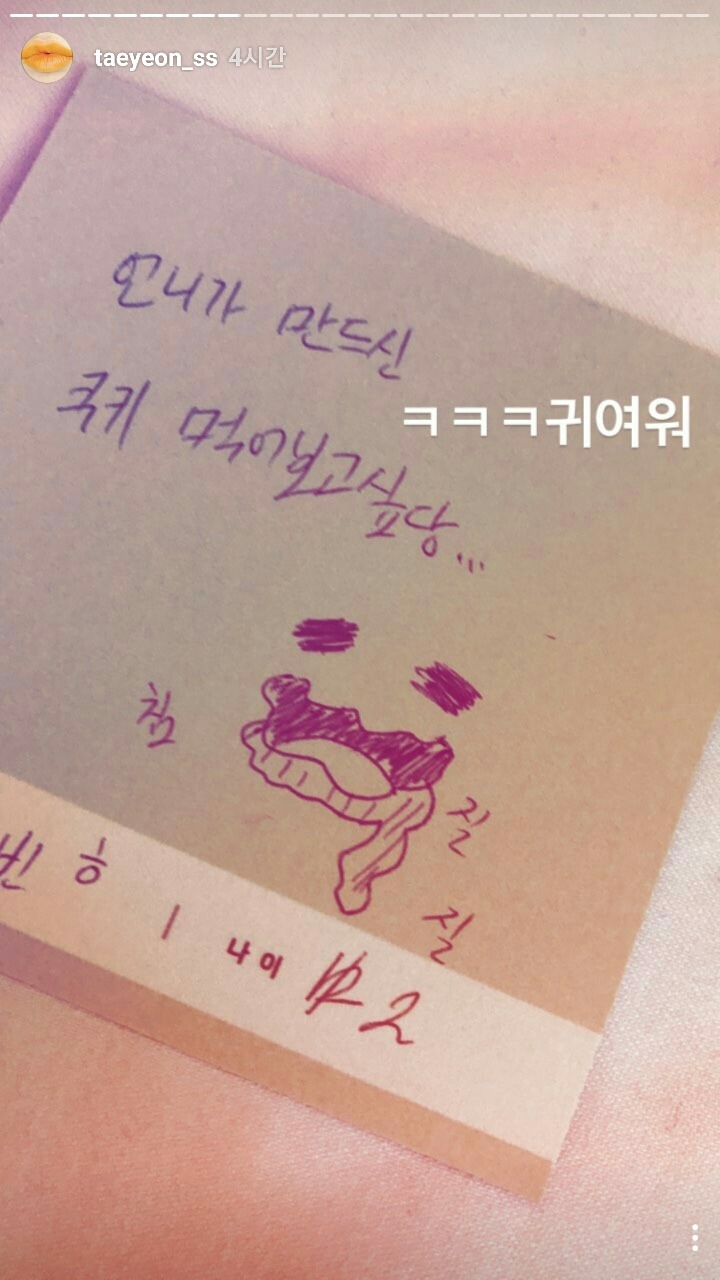 taeyeon_ss 4시간
언니가 만드신
ㅋㅋㅋ귀여워
쿡키 먹어보고싶당...
침
질
질
빈 ㅎ
나이 2